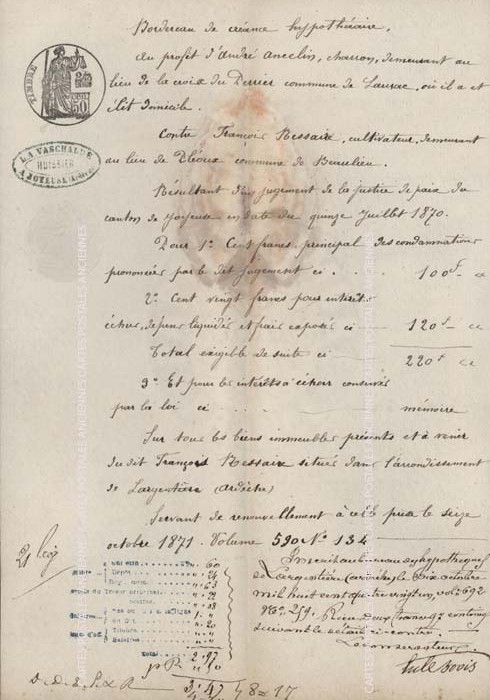 Bordereau de créance hypothécaire,
Au profit d'André Ancelin, charron, demeurant au
lieu de la croix du Perrier commune de Laurac, où il a et
élit domicile.
TIMBRE
50
Contre François Ressaire, cultivateur, demeurant
au lieu de commune de Beaulieu.
LA VASCHALDE
HUISSIER
A JOYEUSE (Ardèche)
Résultant d'un jugement de la justice de paix du
canton de Joyeuse en date du quinze Juillet 1870.
Pour 1° Cent francs, principal des condamnations
prononcées par le dit jugement ci 100f "c
2° Cent vingt francs pour intérêts
échus, dépens liquidés et frais exposés ci 120f "c
Total exigible de suite ci 220f "c
3° Et pour les intérêts à échoir conservés
par la loi ci mémoire
Sur tous les biens immeubles présents et à venir
du dit François Ressaire situés dans l'arrondissement
de Largentière (Ardèche)
Servant de renouvellement à celle prise le seize
octobre 1871. Volume 590 N° 134
Inscrit au bureau des hypothèques
de Largentière (Ardèche) le six octobre
mil huit cent quatre vingt un, vol. 692
N° 259. Reçu deux francs
suivant le détail ci-contre.
Le conservateur
Timbres
Salaires
2.97
3.47